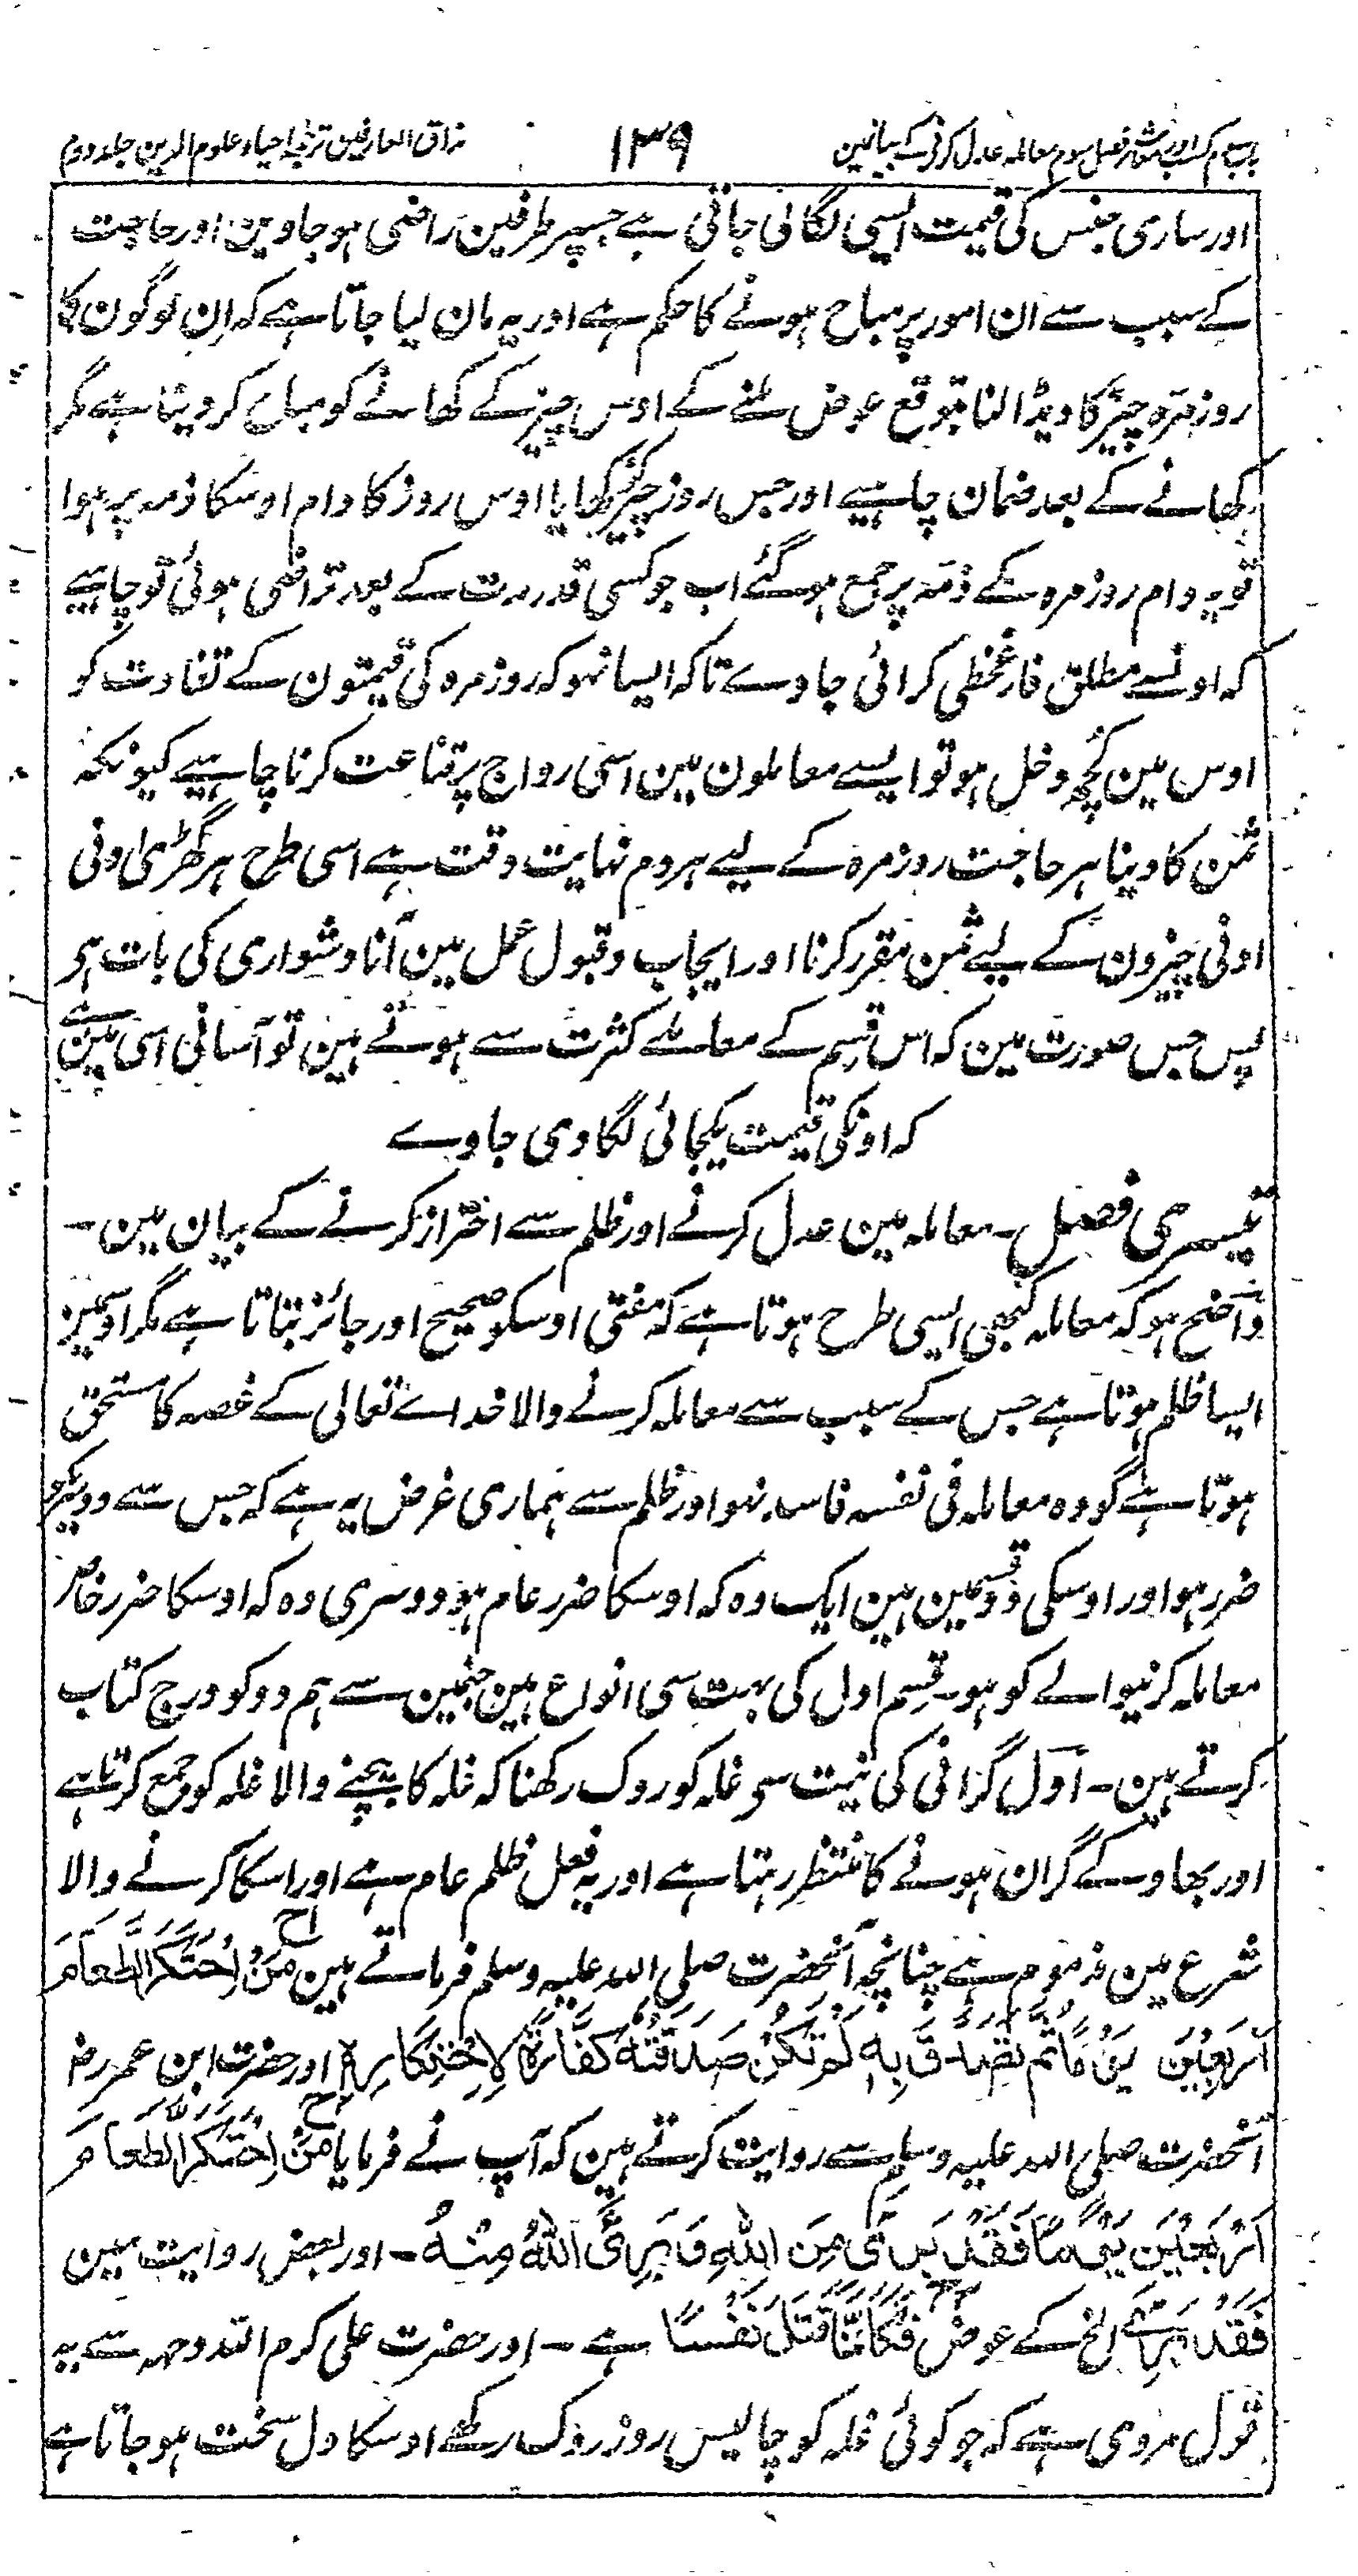 باب سوم کسب اور معاش فصل سوم معاملہ عدل کرنیکے بیانمین
۱۳۹
مذاق العارفین ترجمہ احیاء علوم الدین جلد دوم
اور ساری جنس کی قیمت ایسی لگائی جاتی ہے جسپر طرفین راضی ہو جاوین اور حاجت
کے سبب سے ان امور پر مباح ہونے کا حکم ہے اور یہ مان لیا جاتا ہے کہ اِن لوگون کا
روزمرہ چیز کا دیڈالنا بتوقع عوض ملنے کے اوس چیز کے کھانے کو مباح کر دیتا ہے مگر
کھانے کے بعد ضمان چاہیے اور جس روز چیز کو کھایا اوس روز کا دام اوسکا ذمہ پر ہوا
تو یہ دام روزمرہ کے ذمّہ پر جمع ہو گئے اب جو کسی قدر مدت کے بعد تراضی ہوئی تو چاہیے
کہ اونسے مطلق فارغخطی کرائی جاوے تاکہ ایسا نہو کہ روزمرہ کی قیمتون کے تفاوت کو
اوس مین کچھ دخل ہو تو ایسے معاملون مین اسی رواج پر قناعت کرنا چاہیے کیونکہ
ثمن کا دینا ہر حاجت روزمرہ کے لیے ہر دم نہایت دقت ہے اسی طرح ہر گھڑی ادنی
ادنی چیزون کے لیے ثمن مقرر کرنا اور ایجاب و قبول عمل مین آنا دشواری کی بات ہو
پس جس صورت مین کہ اس قسم کے معاملے کثرت سے ہوتے ہین تو آسانی اسی مین ہے
کہ اونکی قیمت یکجائی لگا دی جاوے
تیسری فصل۔ معاملہ مین عدل کرنے اور ظلم سے احتراز کرنے کے بیان مین ۔
واضح ہو کہ معاملہ کبھی ایسی طرح ہوتا ہے کہ مفتی اوسکو صحیح اور جائز بتاتا ہے مگر اوسمین
ایسا ظلم ہوتا ہے جس کے سبب سے معاملہ کرنے والا خداے تعالی کے غصہ کا مستحق
ہوتا ہے گو وہ معاملہ فی نفسہ فاسد نہو اور ظلم سے ہماری غرض یہ ہے کہ جس سے دوسریکو
ضرر ہو اور اوسکی دو قسمین ہین ایک وہ کہ اوسکا ضرر عام ہو دوسری وہ کہ اوسکا ضرر خاص
معاملہ کرنیوالے کو ہو۔ قسم اول کی بہت سی انواع ہین جنمین سے ہم دو کو درج کتاب
کرتے ہین ۔ اول گرانی کی نیت سی غلہ کو روک رکھنا کہ غلہ کا بیچنے والا غلہ کو جمع کرتا ہے
اور بھاو کے گران ہونے کا منتظر رہتا ہے اور یہ فعل ظلم عام ہے اور اسکا کرنے والا
شرع مین مذموم ہے چنانچہ آنحضرت صلی اللہ علیہ وسلم فرماتے ہین ح مَنْ اِحْتَكَرَ الطَّعَامَ
اَرْبَعِيْنَ يَوْمًا ثُمَّ تَصَدَّقَ بِهِ لَمْ تَكُنْ صَدَقَتُهُ كَفَّارَةً لِاحْتِكَارِهِ اور حضرت ابن عمر رض
آنحضرت صلی اللہ علیہ وسلم سے روایت کرتے ہین کہ آپ نے فرمایا ح مَنْ اِحْتَكَرَ الطَّعَامَ
اَرْبَعِيْنَ يَوْمًا فَقَدْ بَرِئَ مِنَ اللّٰهِ وَ بَرِئَ اللّٰهُ مِنْهُ ۔ اور بعض روایت مین
فَقَدْ بَرِئَ الخ کے عوض فَكَاَنَّمَا قَتَلَ نَفْسًا ہے ۔ اور حضرت علی کرم اللہ وجہہ سے یہ
قول مروی ہے کہ جو کوئی غلہ کو چالیس روز روک رکھے اوسکا دل سخت ہو جاتا ہے